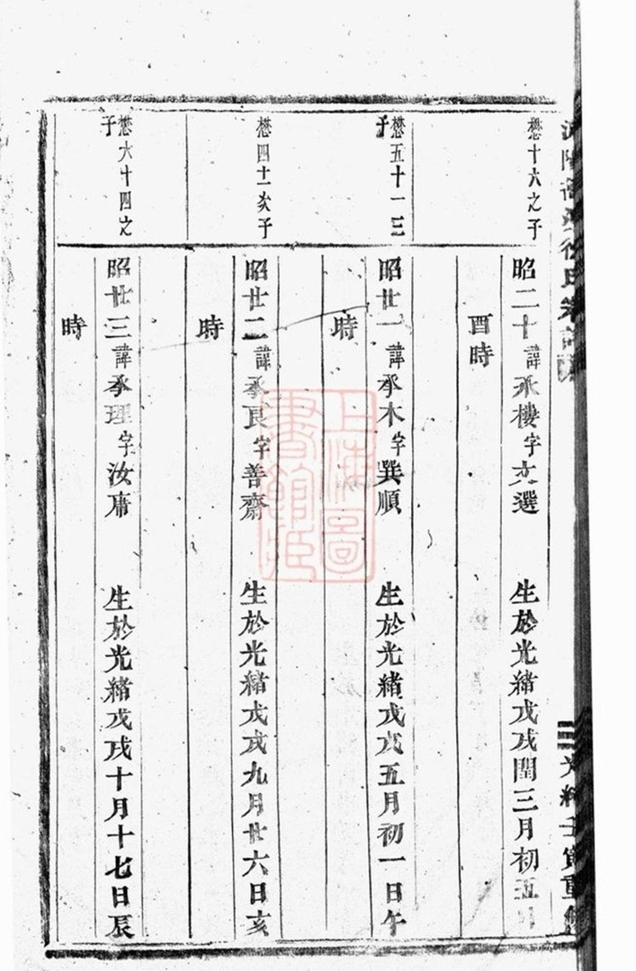 懋十六之子
昭二十諱承樓字文選　生於光緒戊戌閏三月初五日
酉時
懋五十一三
子
昭廿一諱承木字巽順　生於光緒戊戌五月初一日午
時
懋四十一次子
昭廿二諱承良字善齋　生於光緒戊戌九月廿六日亥
時
懋六十四之
子
昭廿三諱承理字汝庸　生於光緒戊戌十月十七日辰
時
光緒壬寅重修
上海圖
書館藏